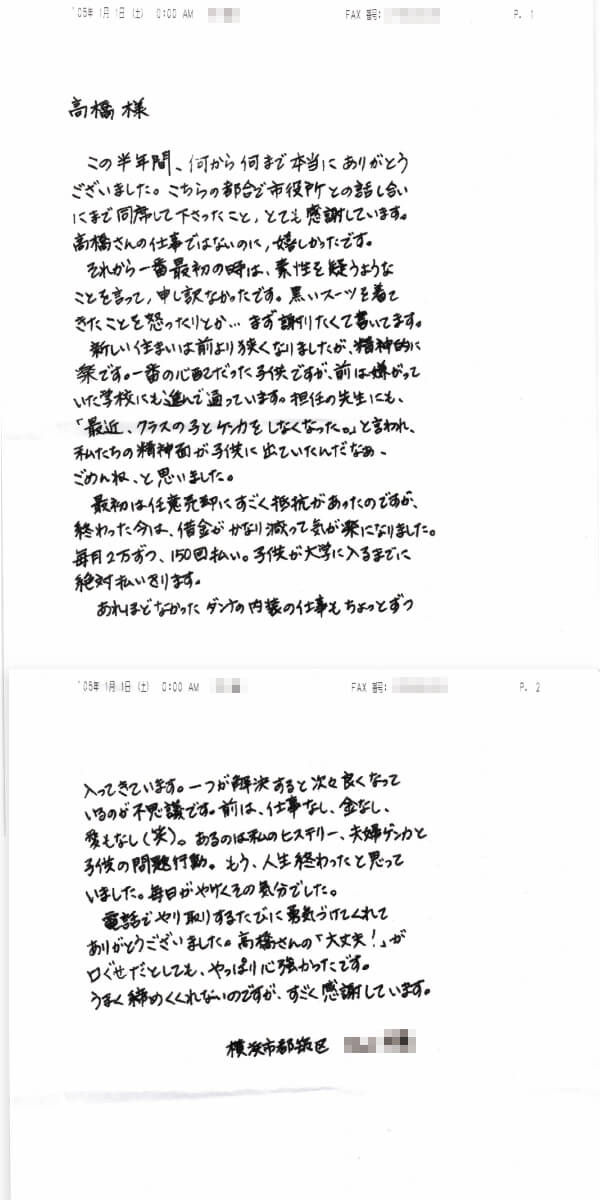 '05年 1月 1日 (土) 0:00 AM FAX 番号: P. 1
高橋 様
この半年間、何から何まで本当にありがとう
ございました。こちらの都合で市役所との話し合い
にまで同席して下さったこと、とても感謝しています。
高橋さんの仕事ではないのに、嬉しかったです。
それから一番最初の時は、素性を疑うような
ことを言って、申し訳なかったです。黒いスーツを着て
きたことを怒ったりとか… まず謝りたくて書いてます。
新しい住まいは前より狭くなりましたが、精神的に
楽です。一番の心配だった子供ですが、前は嫌がって
いた学校にも進んで通っています。担任の先生にも、
「最近、クラスの子とケンカをしなくなった。」と言われ、
私たちの精神面が子供に出ていたんだなぁ、
ごめんね、と思いました。
最初は任意売却にすごく抵抗があったのですが、
終わった今は、借金がかなり減って気が楽になりました。
毎月2万ずつ、150回払い。子供が大学に入るまでに
絶対払いきります。
あれほどなかったダンナの内装の仕事もちょっとずつ
'05年 1月 1日 (土) 0:00 AM FAX 番号: P. 2
入ってきています。一つが解決すると次々良くなって
いるのが不思議です。前は、仕事なし、金なし、
愛もなし(笑)。あるのは私のヒステリー、夫婦ゲンカと
子供の問題行動。もう、人生終わったと思って
いました。毎日がやけくその気分でした。
電話でやり取りするたびに勇気づけてくれて
ありがとうございました。高橋さんの「大丈夫!」が
口ぐせだとしても、やっぱり心強かったです。
うまく締めくくれないのですが、すごく感謝しています。
横浜市都筑区